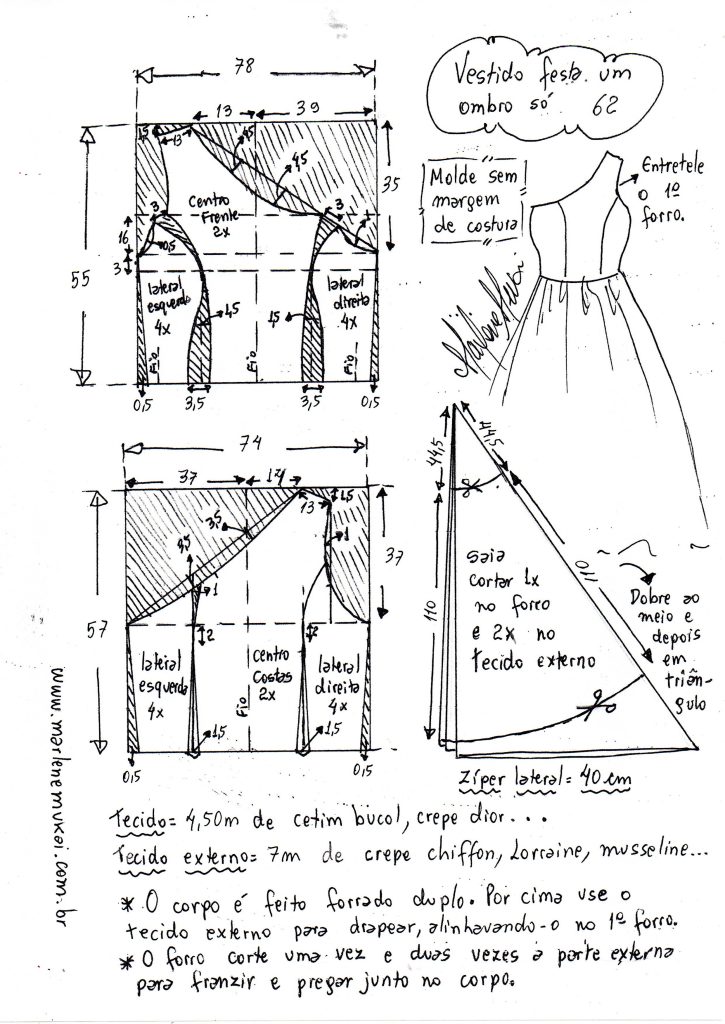 Vestido festa um
ombro só 62
Molde sem
margem
de costura
Entretele
o 1º
forro.
78
13
39
1,5
13
4,5
4,5
35
Centro
Frente
2x
3
3
16
0,5
3
55
lateral
esquerda
4x
1,5
1,5
lateral
direita
4x
Fio
Fio
Fio
0,5
3,5
3,5
0,5
74
37
14
13
1,5
3,5
3,5
1
1
37
57
2
2
lateral
esquerda
4x
Centro
Costas
2x
lateral
direita
4x
Fio
1,5
1,5
0,5
0,5
44,5
44,5
110
110
saia
cortar 1x
no forro
e 2x no
tecido externo
Dobre ao
meio e
depois
em
triân-
gulo
Zíper lateral = 40 cm
www.marlenemukai.com.br
Tecido = 4,50m de cetim bucol, crepe dior...
Tecido externo = 7m de crepe chiffon, Lorraine, musseline...
* O corpo é feito forrado duplo. Por cima use o
tecido externo para drapear, alinhavando-o no 1º forro.
* O forro corte uma vez e duas vezes a parte externa
para franzir e pregar junto no corpo.